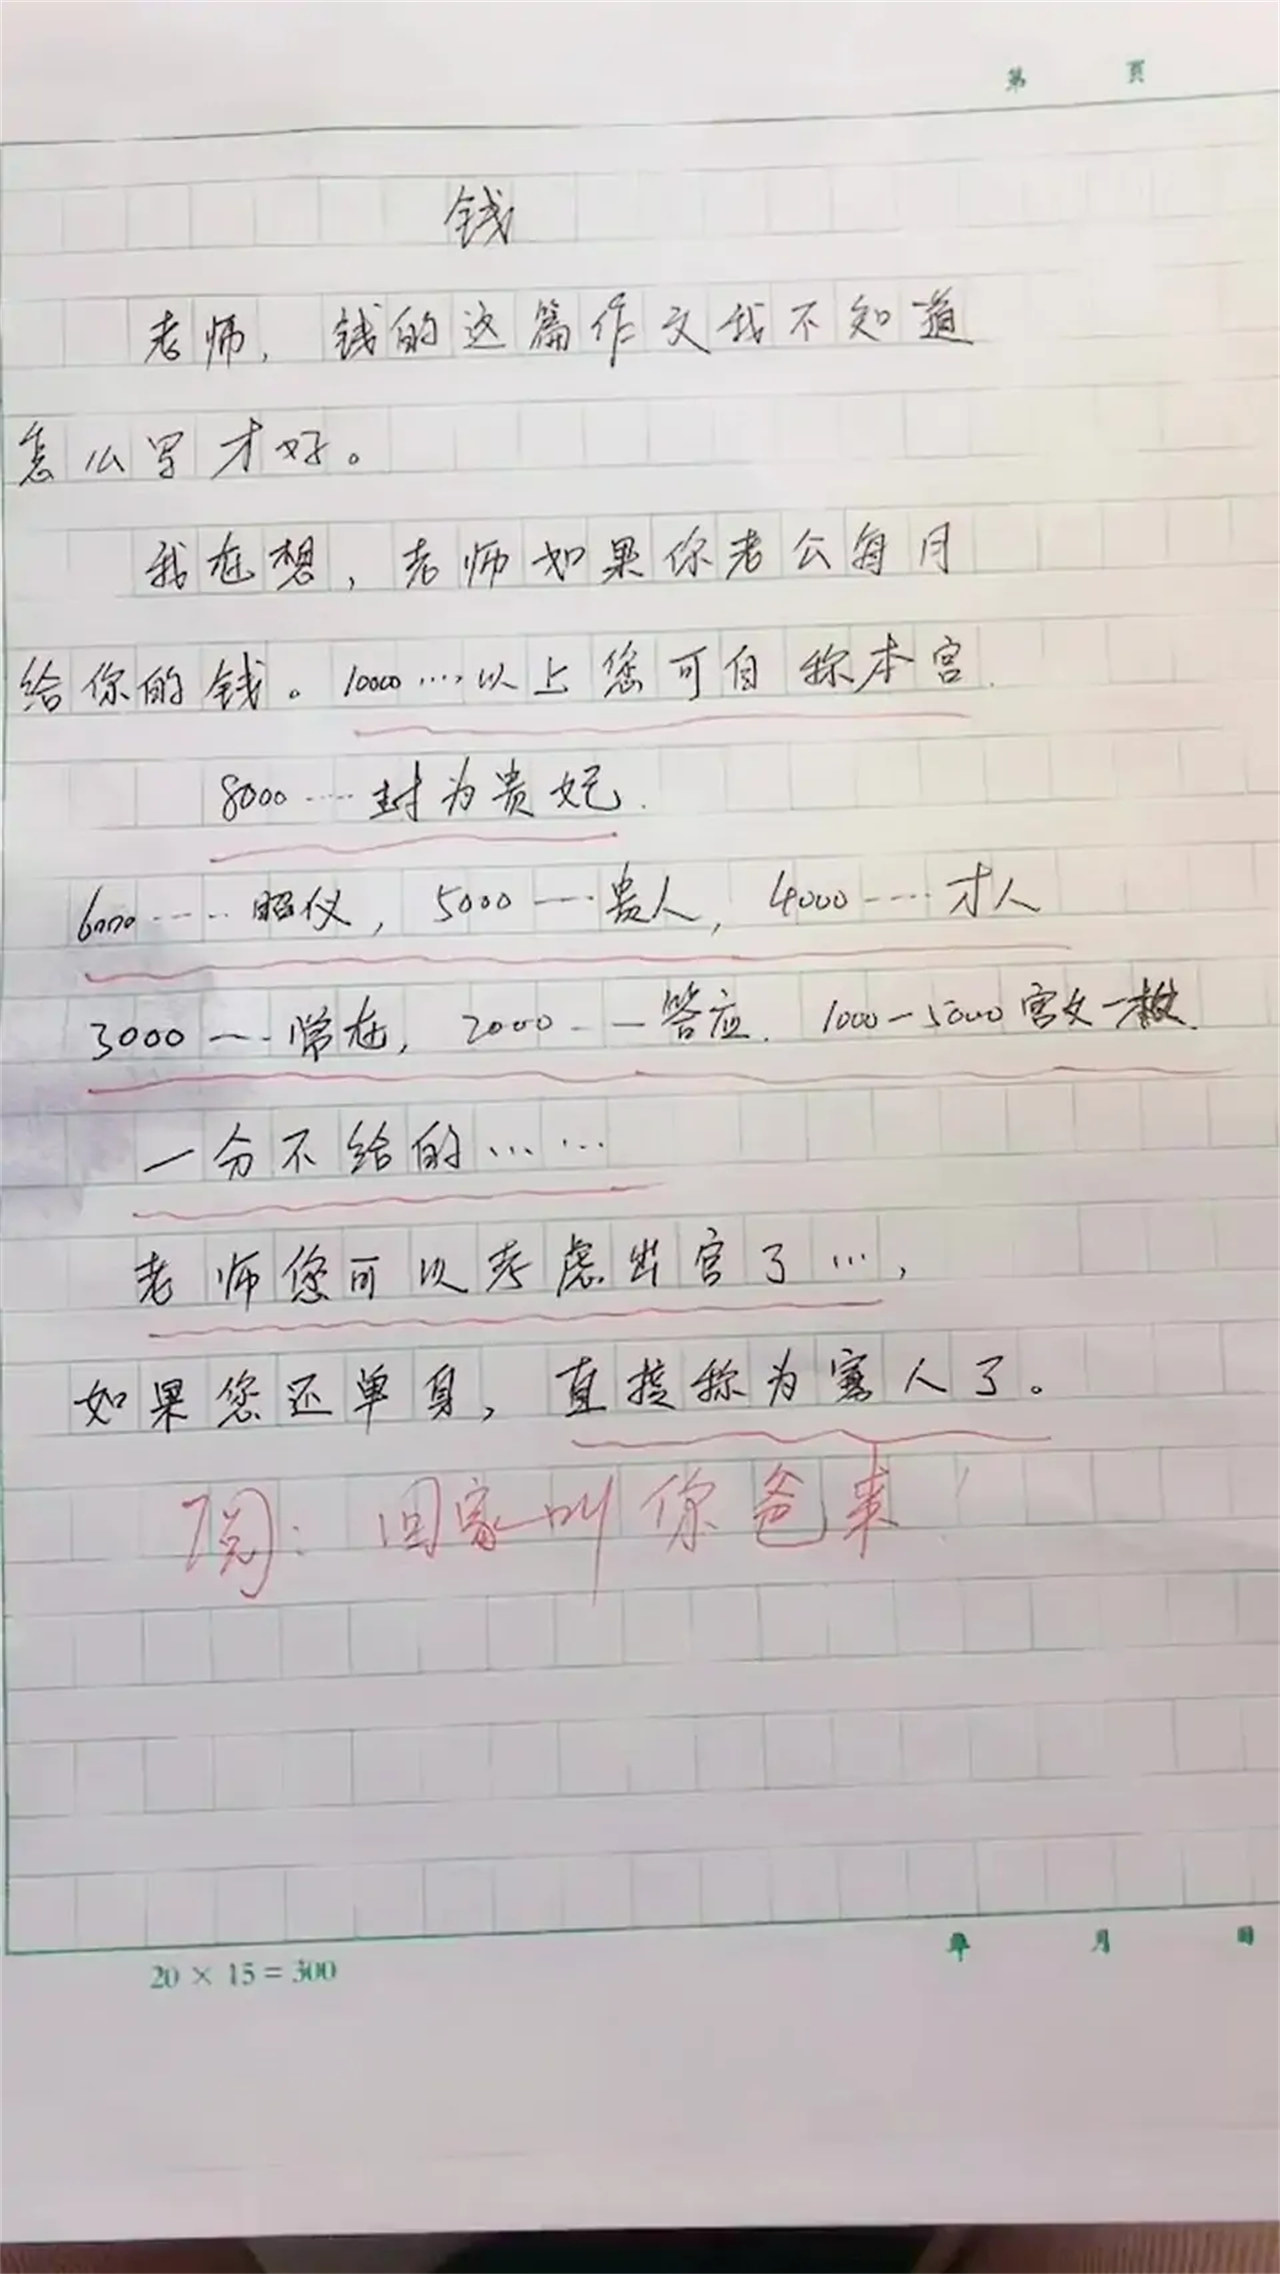 第 页
钱
老师，钱的这篇作文我不知道
怎么写才好。
我在想，老师如果你老公每月
给你的钱。10000……以上您可自称本宫.
8000……封为贵妃.
6000……昭仪，5000……贵人，4000……才人
3000……常在，2000……答应. 1000-5000宫女一枚.
一分不给的……
老师您可以考虑出宫了…，
如果您还单身，直接称为寡人了。
阅：回家叫你爸来！
20×15=300
年 月 日